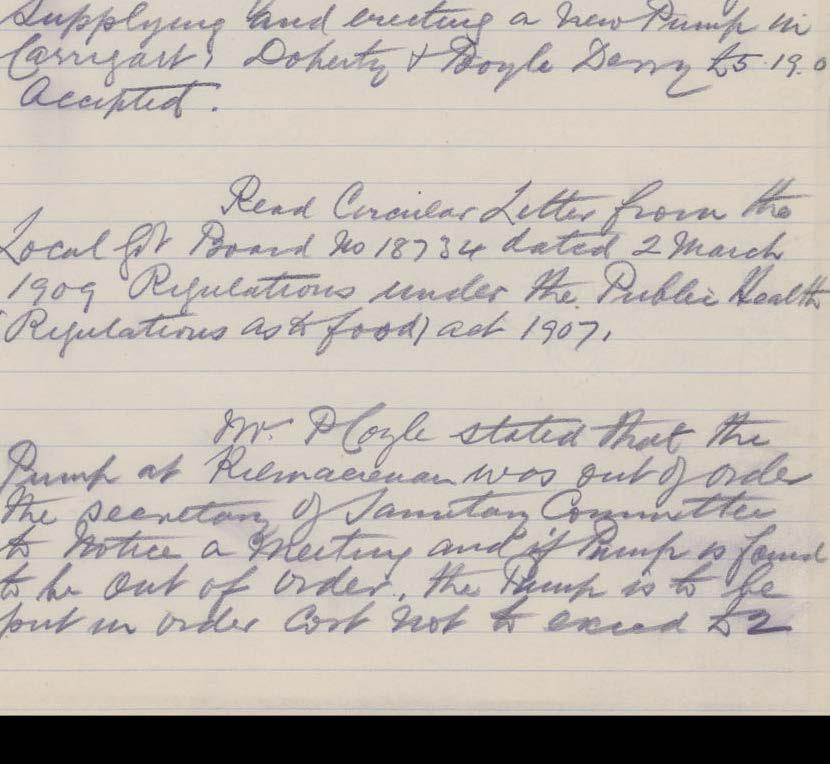 Supplying and erecting a new Pump in
Carrigart, Doherty & Boyle Derry £5.19.0
Accepted.
Read Circular Letter from the
Local Gvt Board No 18734 dated 2 March
1909 Regulations under the Public Health
(Regulations as to food) act 1907.
Mr. P Coyle stated that the
Pump at Kilmacrenan was out of order
the secretary of Sanitary Committee
to Notice a Meeting and if Pump is found
to be out of order, the Pump is to be
put in order Cost not to exceed £2